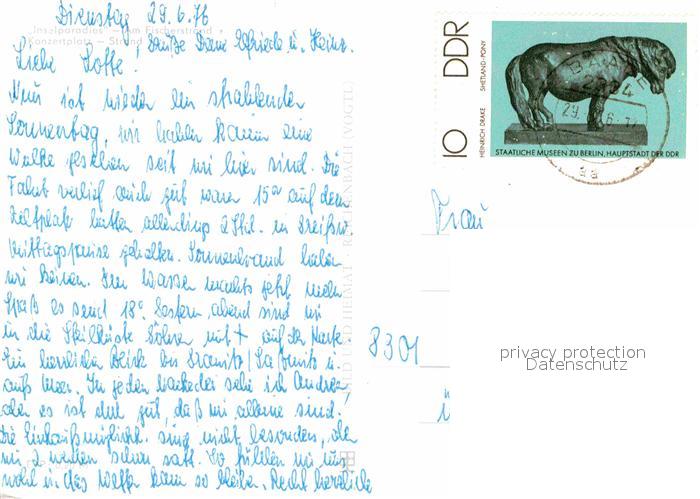 Dienstag 29.6.76
"Inselparadies" — Am Fischerstrand
Konzertplatz — Strand
Grüße Deine Elfriede u. Heinz.
Liebe Lotte!
Nun ist wieder ein strahlender
Sonnentag, wir haben kaum eine
Wolke gesehen seit wir hier sind. Die
Fahrt verlief auch gut waren 15 auf dem
Zeltplatz hatten allerdings 2 Std. in Greifsw.
Mittagspause gehalten. Sonnenbrand haben
wir keinen. Im Wasser machts jetzt mehr
Spaß es sind 18°. Gestern abend sind wir
in die Steilküste Göhren mit auf der
Ein herrlicher Blick bis
aufs Meer. In jedem sehe ich Andrea,
aber es ist gut, daß wir alleine sind.
Die Einkaufsmöglichk. sind nicht besonders, aber
wir 2 werden schon satt. So fühlen wir uns
wohl u. das Wetter kann so bleiben. Recht herzliche
BILD UND HEIMAT REICHENBACH (VOGTL)
10 DDR
HEINRICH DRAKE SHETLAND-PONY
STAATLICHE MUSEEN ZU BERLIN, HAUPTSTADT DER DDR
BAABE
29. 6. 7
aa
Frau
8301
privacy protection
Datenschutz